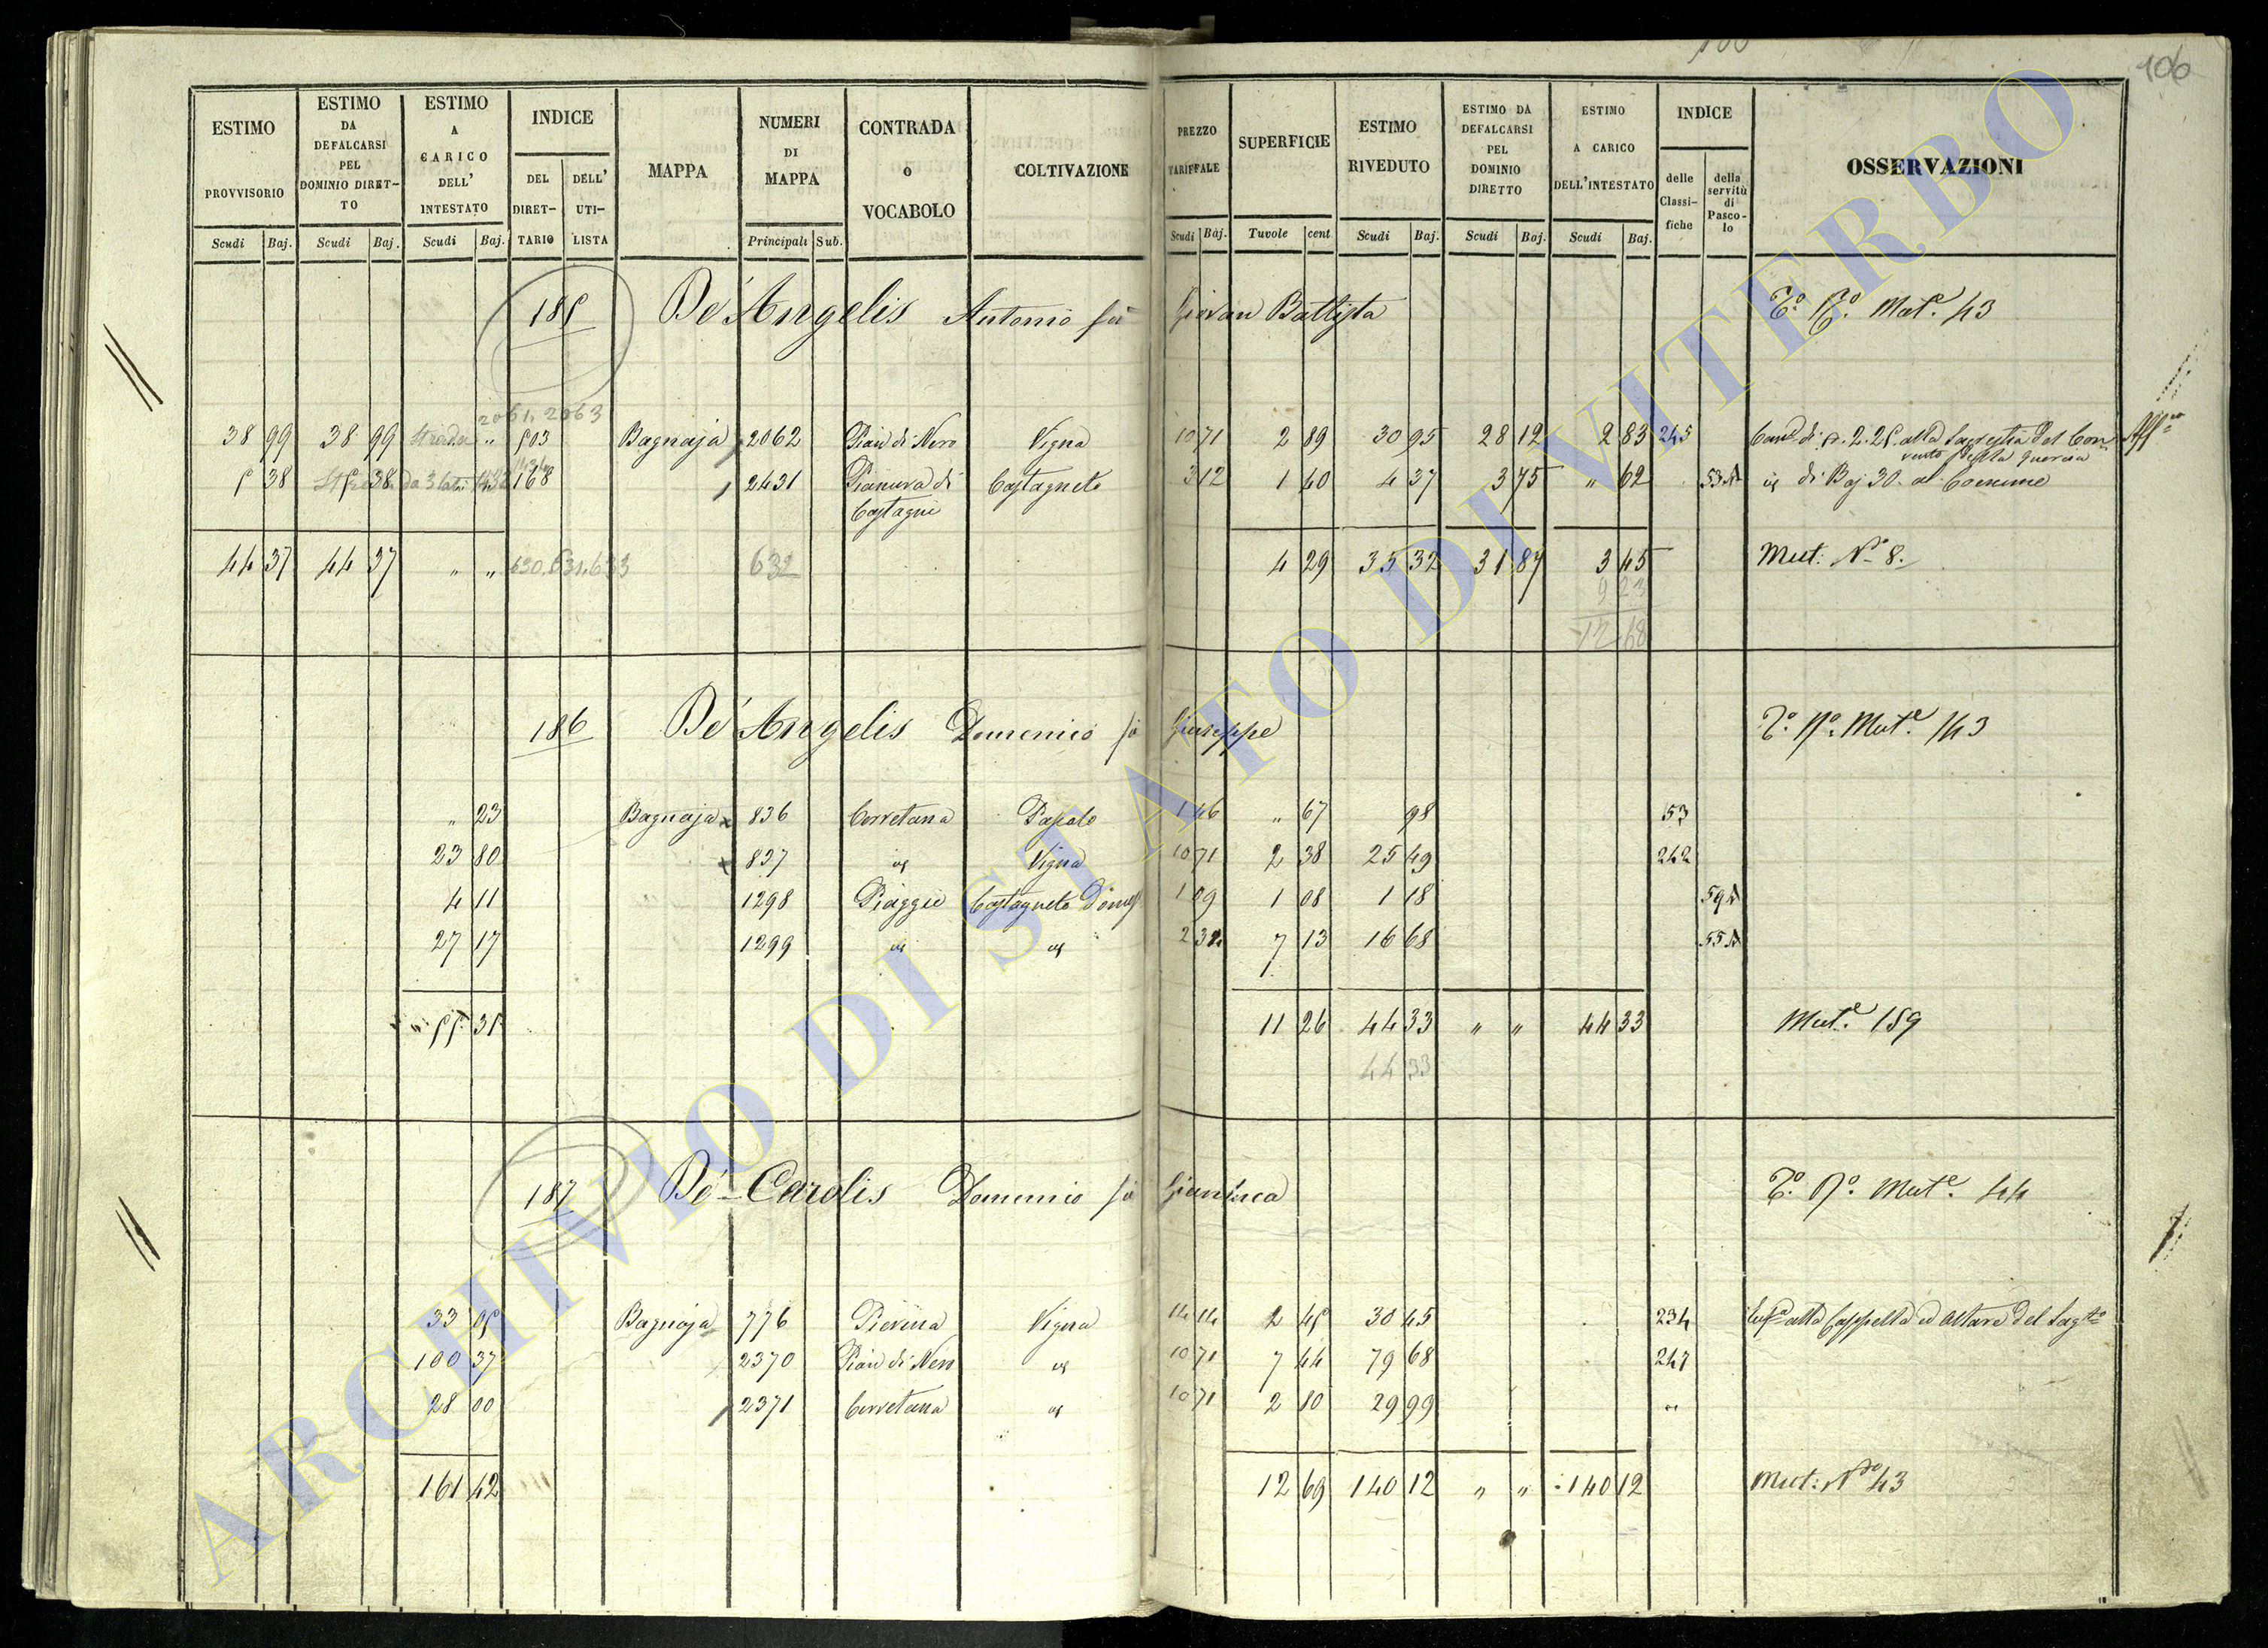 106
ESTIMO PROVVISORIO Scudi Baj.
ESTIMO DA DEFALCARSI PEL DOMINIO DIRET-TO Scudi Baj.
ESTIMO A CARICO DELL' INTESTATO Scudi Baj.
INDICE DEL DIRET-TARIO DELL' UTI-LISTA
MAPPA
NUMERI DI MAPPA Principali Sub.
CONTRADA O VOCABOLO
COLTIVAZIONE
PREZZO TARIFFALE Scudi Baj.
SUPERFICIE Tavole cent
ESTIMO RIVEDUTO Scudi Baj.
ESTIMO DA DEFALCARSI PEL DOMINIO DIRETTO Scudi Baj.
ESTIMO A CARICO DELL'INTESTATO Scudi Baj.
INDICE delle Classi-fiche della servitù di Pasco-lo
OSSERVAZIONI
185 De' Angelis Antonio fù Giovan Battista Mut.e 43
2061. 2063
38 99 38 99 Strada " 503 Bagnaja 2062 Pian di Nero Vigna 10 71 2 89 30 95 28 12 2 83 245 alla Sagrestia del Con
vento della Quercia
5 38 5 38 da 3 lati 168 2431 Pianura di Castagneto 3 12 1 40 4 37 3 75 " 62 53 di Baj 30 al Comune
Castagni
44 37 44 37 " " 630.631.633 632 4 29 35 32 31 87 3 45 Mut: N. 8.
9 23
12 68
186 De' Angelis Domenico fù Giuseppe Mut.e 143
" 23 Bagnaja 836 Corvetana Pascolo 1 46 " 67 98 53
23 80 837 Vigna 10 71 2 38 25 49 242
4 11 1298 Piaggie Castagneto 1 09 1 08 1 18 59
27 17 1299 2 34 7 13 16 68 55
55 31 11 26 44 33 " " 44 33 Mut.e 159
44 33
187 De-Carolis Domenico fù Gianluca Mut.e 44
33 05 Bagnaja 776 Pierina Vigna 14 14 2 45 30 45 234 alla Cappella ed Altare del
100 37 2370 Pian di Nero 10 71 7 44 79 68 247
28 00 2371 Corvetana 10 71 2 80 29 99 "
161 42 12 69 140 12 " " 140 12 Mut: N. 43
ARCHIVIO DI STATO DI VITERBO